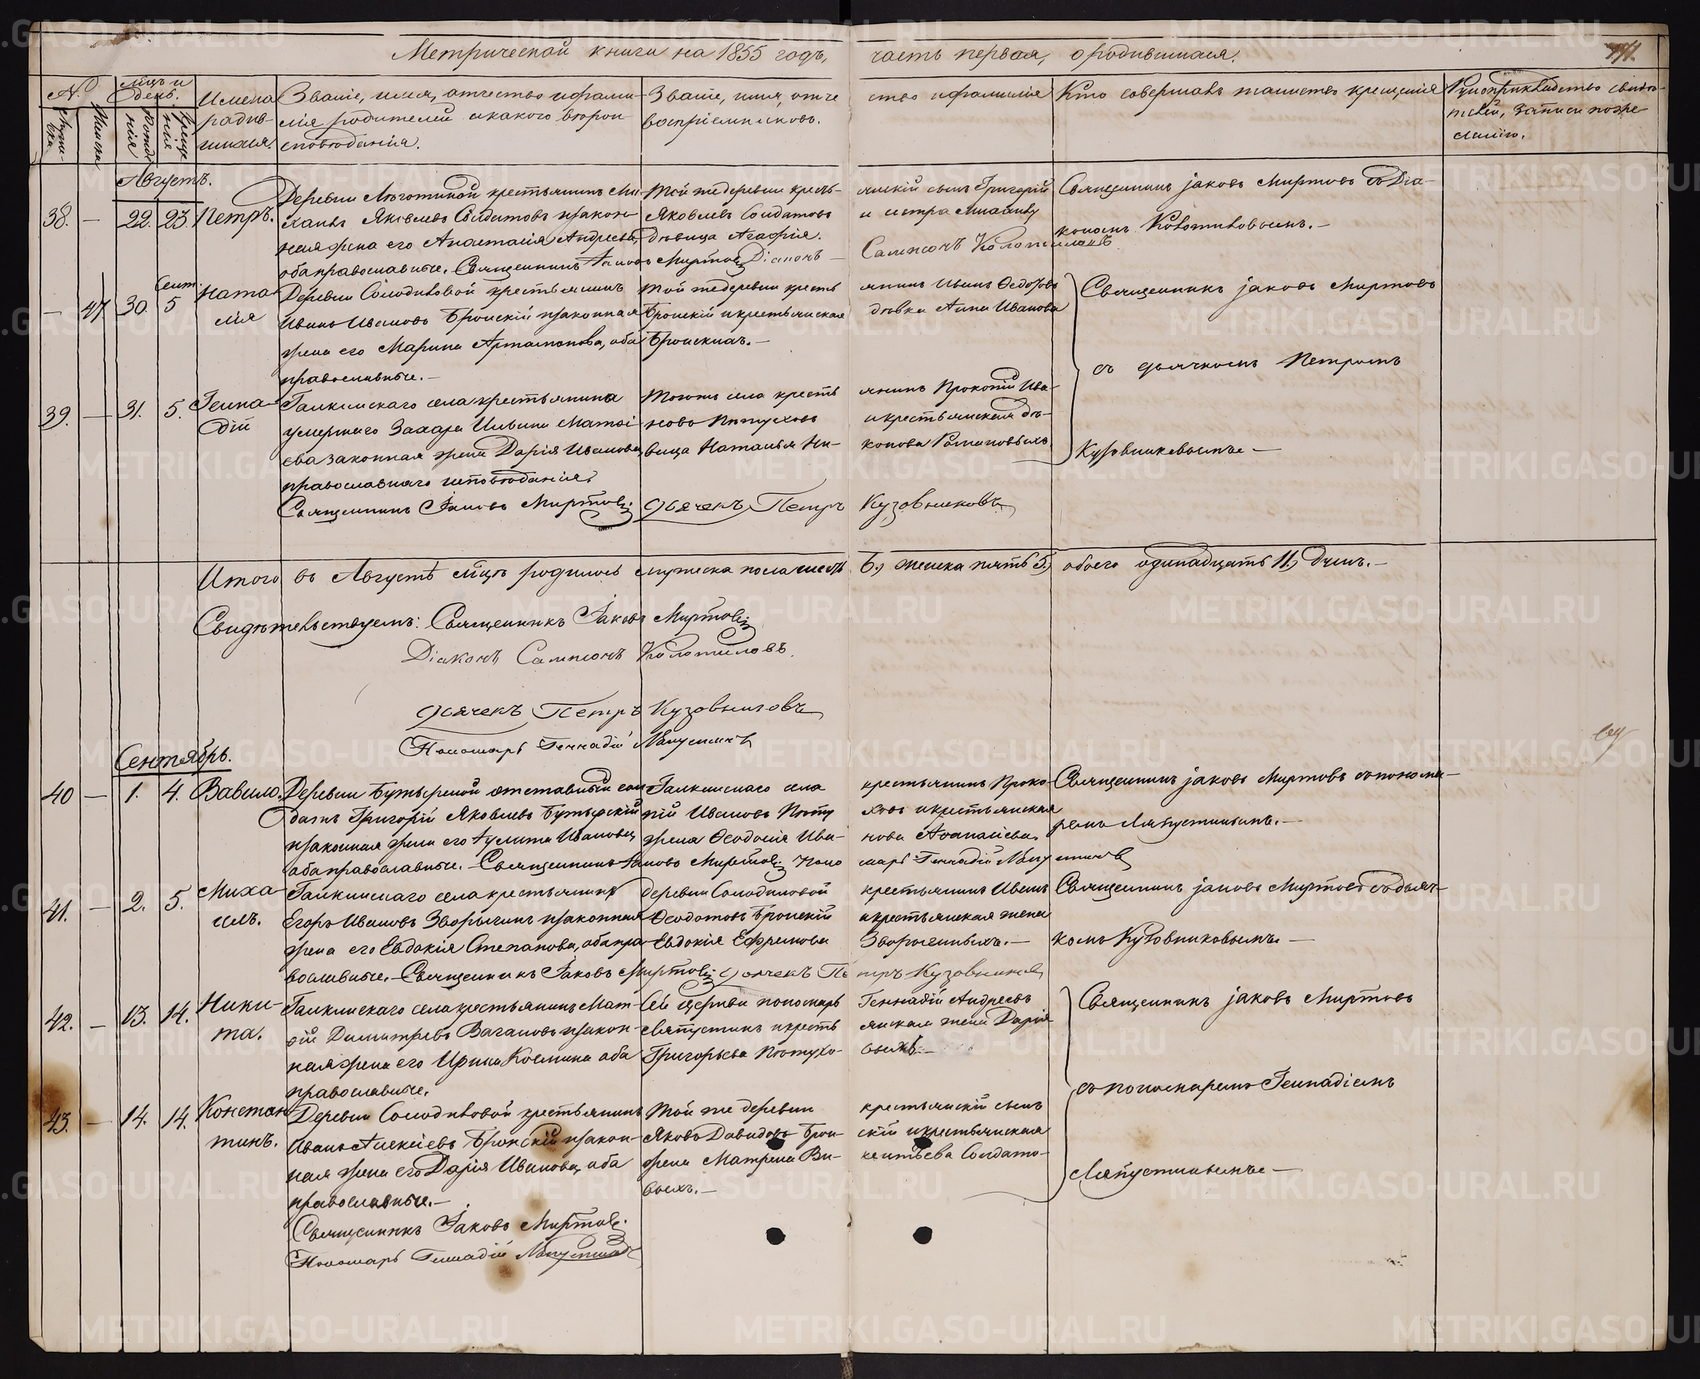 Метрической книги на 1855 годъ, часть первая, о родившихся.
№ Мѣсяцъ и день. Имена родившихся. Званіе, имя, отчество и фамилія родителей и какого вѣроисповѣданія. Званіе, имя, отчество и фамилія воспріемниковъ. Кто совершалъ таинство крещенія Рукоприкладство свидѣтелей записи по желанію.
Августъ.
38. — 22. 23. Петръ.
крестьянинъ Михаилъ Яковлевъ Солдатовъ и законная жена его Анастасія Андреева, оба православные. Священникъ Іаковъ Миртовъ Діаконъ Сампсонъ Колотиловъ
Той же деревни крестьянскій сынъ Григорій Яковлевъ Солдатовъ и сестра дѣвица Агафія.
Священникъ Іаковъ Миртовъ съ Діакономъ Колотиловымъ. —
— 47. 30. Сент. 5 Наталія
Деревни Солодиловой крестьянинъ Иванъ Ивановъ Бронскій и законная жена его Марина Артамонова, оба православные. —
Той же деревни крестьянинъ Иванъ Федоровъ Бронскій и крестьянская дѣвка Анна Иванова Бронскихъ. —
Священникъ Іаковъ Миртовъ
съ дьячкомъ Петромъ
Кузовниковымъ —
39. — 31. 5. Геннадій
Галкинскаго села крестьянина умершаго Захара Ильина законная жена Дарія Иванова, православнаго исповѣданія.
Того же села крестьянинъ Прокопій Ивановъ Пѣтуховъ и крестьянская дѣвица Наталья
Священникъ Іаковъ Миртовъ Дьячекъ Петръ Кузовниковъ
Итого въ Августѣ мцѣ родилось мужеска пола шесть 6, женска пять 5, обоего одинадцать 11, душъ. —
Свидѣтельствуемъ: Священникъ Іаковъ Миртовъ
Діаконъ Сампсонъ Колотиловъ.
Дьячекъ Петръ Кузовниковъ
Пономарь Геннадій Ляпустинъ
Сентябрь.
40 — 1. 4. Вавило.
Деревни Бутырской отставный солдатъ Григорій Яковлевъ Бутырскій и законная жена его Улита Иванова, оба православные. — Священникъ Іаковъ Миртовъ Пономарь Геннадій Ляпустинъ
Галкинскаго села крестьянинъ Прокопій Ивановъ Пѣтуховъ и крестьянская жена Ѳеодосія Иванова
Священникъ Іаковъ Миртовъ съ пономаремъ Ляпустинымъ. —
41. — 2. 5. Михаилъ.
Галкинскаго села крестьянинъ Егоръ Ивановъ Зворыгинъ и законная жена его Евдокія Степанова, оба православные. — Священникъ Іаковъ Миртовъ Дьячекъ Петръ Кузовниковъ
деревни Солодиловой крестьянинъ Иванъ Ѳеодотовъ Бронскій и крестьянская жена Евдокія Ефремова Зворыгиныхъ. —
Священникъ Іаковъ Миртовъ съ дьячкомъ Кузовниковымъ. —
42. — 13. 14. Никита.
Галкинскаго села крестьянинъ Матѳій Димитріевъ Вагановъ и законная жена его Ирина Космина оба православные.
Сей церкви пономарь Геннадій Андреевъ Ляпустинъ и крестьянская жена Дарія Григорьева Пѣтуховыхъ. —
Священникъ Іаковъ Миртовъ
съ пономаремъ Геннадіемъ
Ляпустинымъ —
43. — 14. 14. Константинъ.
Деревни Солодиловой крестьянинъ Иванъ Алексіевъ Бронскій и законная жена его Дарія Иванова, оба православные. —
Той же деревни крестьянскій сынъ Яковъ Давидовъ Бронскій и крестьянская жена Матрена Викентьева Солдатовыхъ. —
Священникъ Іаковъ Миртовъ.
Пономарь Геннадій Ляпустинъ
METRIKI.GASO-URAL.RU